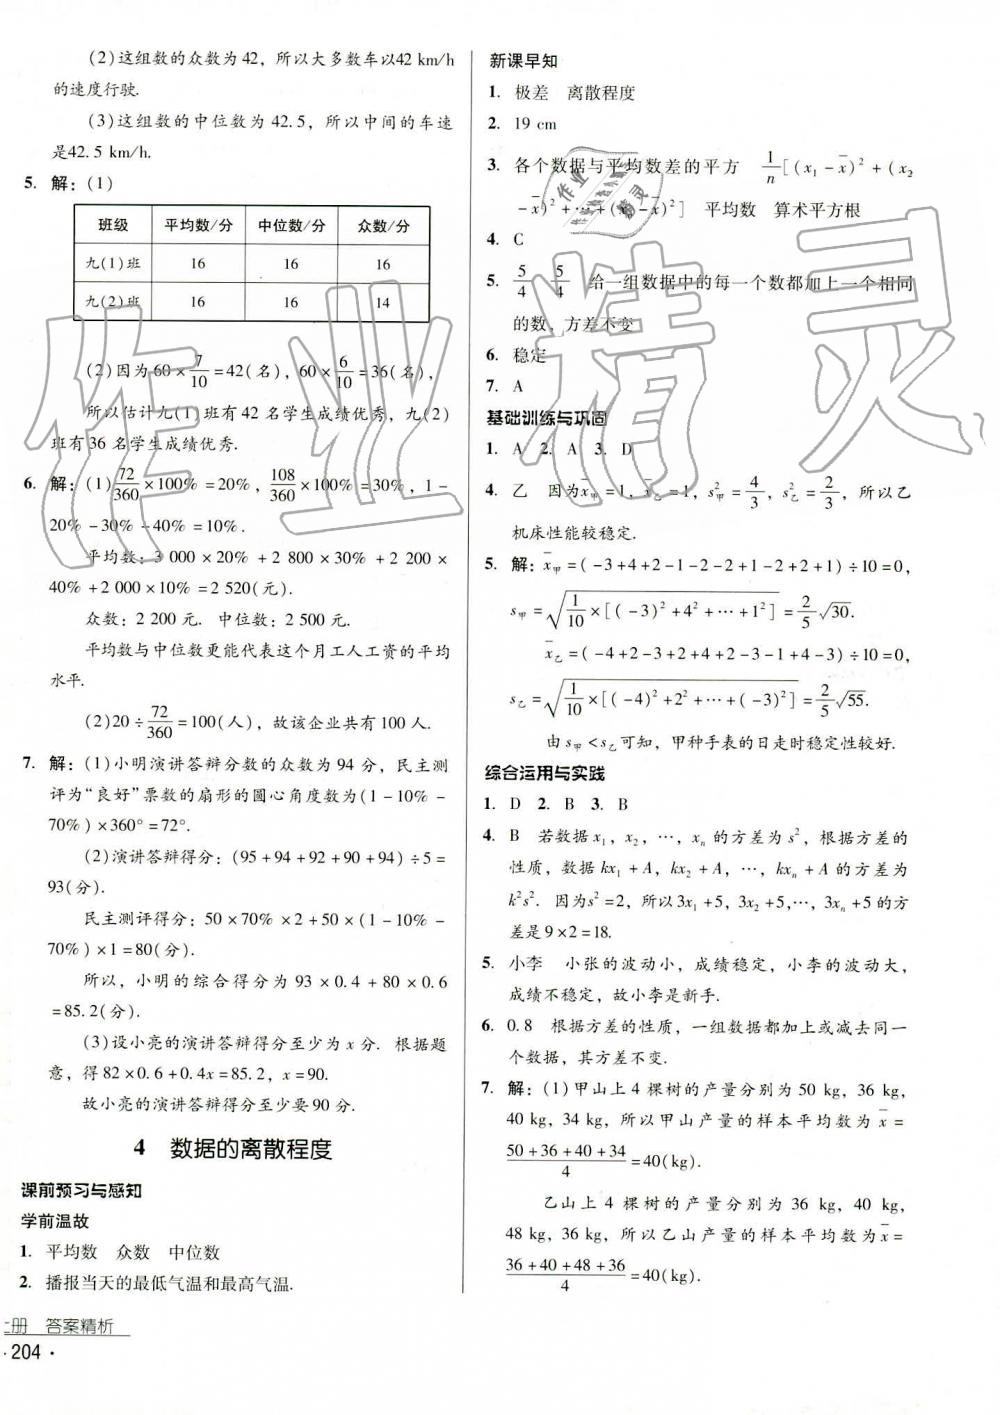 (2)这组数的众数为 42，所以大多数车以42 km/h
的速度行驶.
(3)这组数的中位数为 42.5，所以中间的车速
是42.5 km/h.
5. 解：(1)
班级 平均数/分 中位数/分 众数/分
九(1)班 16 16 16
九(2)班 16 16 14
(2)因为 60×7/10=42(名)，60×6/10=36(名)，
所以估计九(1)班有 42 名学生成绩优秀，九(2)
班有 36 名学生成绩优秀.
6. 解：(1)72/360×100%=20%，108/360×100%=30%，1-
20%-30%-40%=10%.
平均数：3 000×20%+2 800×30%+2 200×
40%+2 000×10%=2 520(元).
众数：2 200 元. 中位数：2 500 元.
平均数与中位数更能代表这个月工人工资的平均
水平.
(2)20÷72/360=100(人)，故该企业共有 100 人.
7. 解：(1)小明演讲答辩分数的众数为 94 分，民主测
评为“良好”票数的扇形的圆心角度数为(1-10%-
70%)×360°=72°.
(2)演讲答辩得分：(95+94+92+90+94)÷5=
93(分).
民主测评得分：50×70%×2+50×(1-10%-
70%)×1=80(分).
所以，小明的综合得分为 93×0.4+80×0.6
=85.2(分).
(3)设小亮的演讲答辩得分至少为 x 分. 根据题
意，得 82×0.6+0.4x=85.2，x=90.
故小亮的演讲答辩得分至少要 90 分.
4 数据的离散程度
课前预习与感知
学前温故
1. 平均数 众数 中位数
2. 播报当天的最低气温和最高气温.
上册 答案精析
· 204 ·
新课早知
1. 极差 离散程度
2. 19 cm
3. 各个数据与平均数差的平方 1/n[(x₁-x̄)²+(x₂
-x̄)²+…+(xₙ-x̄)²] 平均数 算术平方根
4. C
5. 5/4 5/4 给一组数据中的每一个数都加上一个相同
的数，方差不变
6. 稳定
7. A
基础训练与巩固
1. A 2. A 3. D
4. 乙 因为x̄甲=1，x̄乙=1，s²甲=4/3，s²乙=2/3，所以乙
机床性能较稳定.
5. 解：x̄甲=(-3+4+2-1-2-2+1-2+2+1)÷10=0，
s甲=√(1/10×[(-3)²+4²+…+1²])=2/5√30.
x̄乙=(-4+2-3+2+4+2-3-1+4-3)÷10=0，
s乙=√(1/10×[(-4)²+2²+…+(-3)²])=2/5√55.
由 s甲<s乙可知，甲种手表的日走时稳定性较好.
综合运用与实践
1. D 2. B 3. B
4. B 若数据 x₁，x₂，…，xₙ 的方差为 s²，根据方差的
性质，数据 kx₁+A，kx₂+A，…，kxₙ+A 的方差为
k²s². 因为s²=2，所以3x₁+5，3x₂+5，…，3xₙ+5 的方
差是 9×2=18.
5. 小李 小张的波动小，成绩稳定，小李的波动大，
成绩不稳定，故小李是新手.
6. 0.8 根据方差的性质，一组数据都加上或减去同一
个数据，其方差不变.
7. 解：(1)甲山上 4 棵树的产量分别为 50 kg，36 kg，
40 kg，34 kg，所以甲山产量的样本平均数为 x̄=
(50+36+40+34)/4=40(kg).
乙山上 4 棵树的产量分别为 36 kg，40 kg，
48 kg，36 kg，所以乙山产量的样本平均数为 x̄=
(36+40+48+36)/4=40(kg).
作业精灵